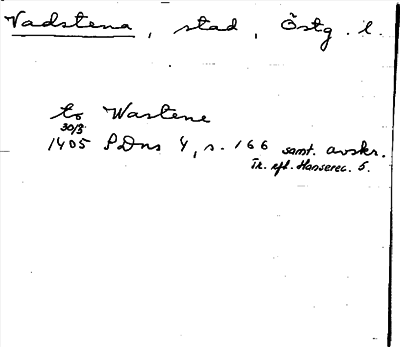 Vadstena, stad, Östg. l.
to Wastene
30/3
1405 SDns 4, s. 166 samt. avskr.
Tr. efl. Hanserec. 5.